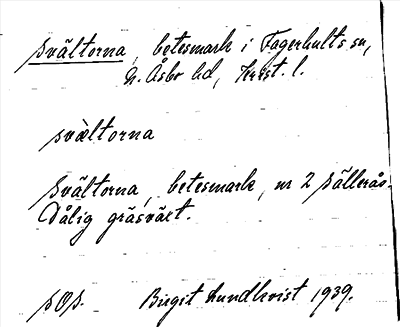 Svältorna, betesmark i Fagerhults sn,
N. Åsbo hd, Krist. l.
svæltorna
Svältorna, betesmark, nr 2 Sällerås.
Dålig gräsväxt.
SOS. Birgit Lundkvist 1939.